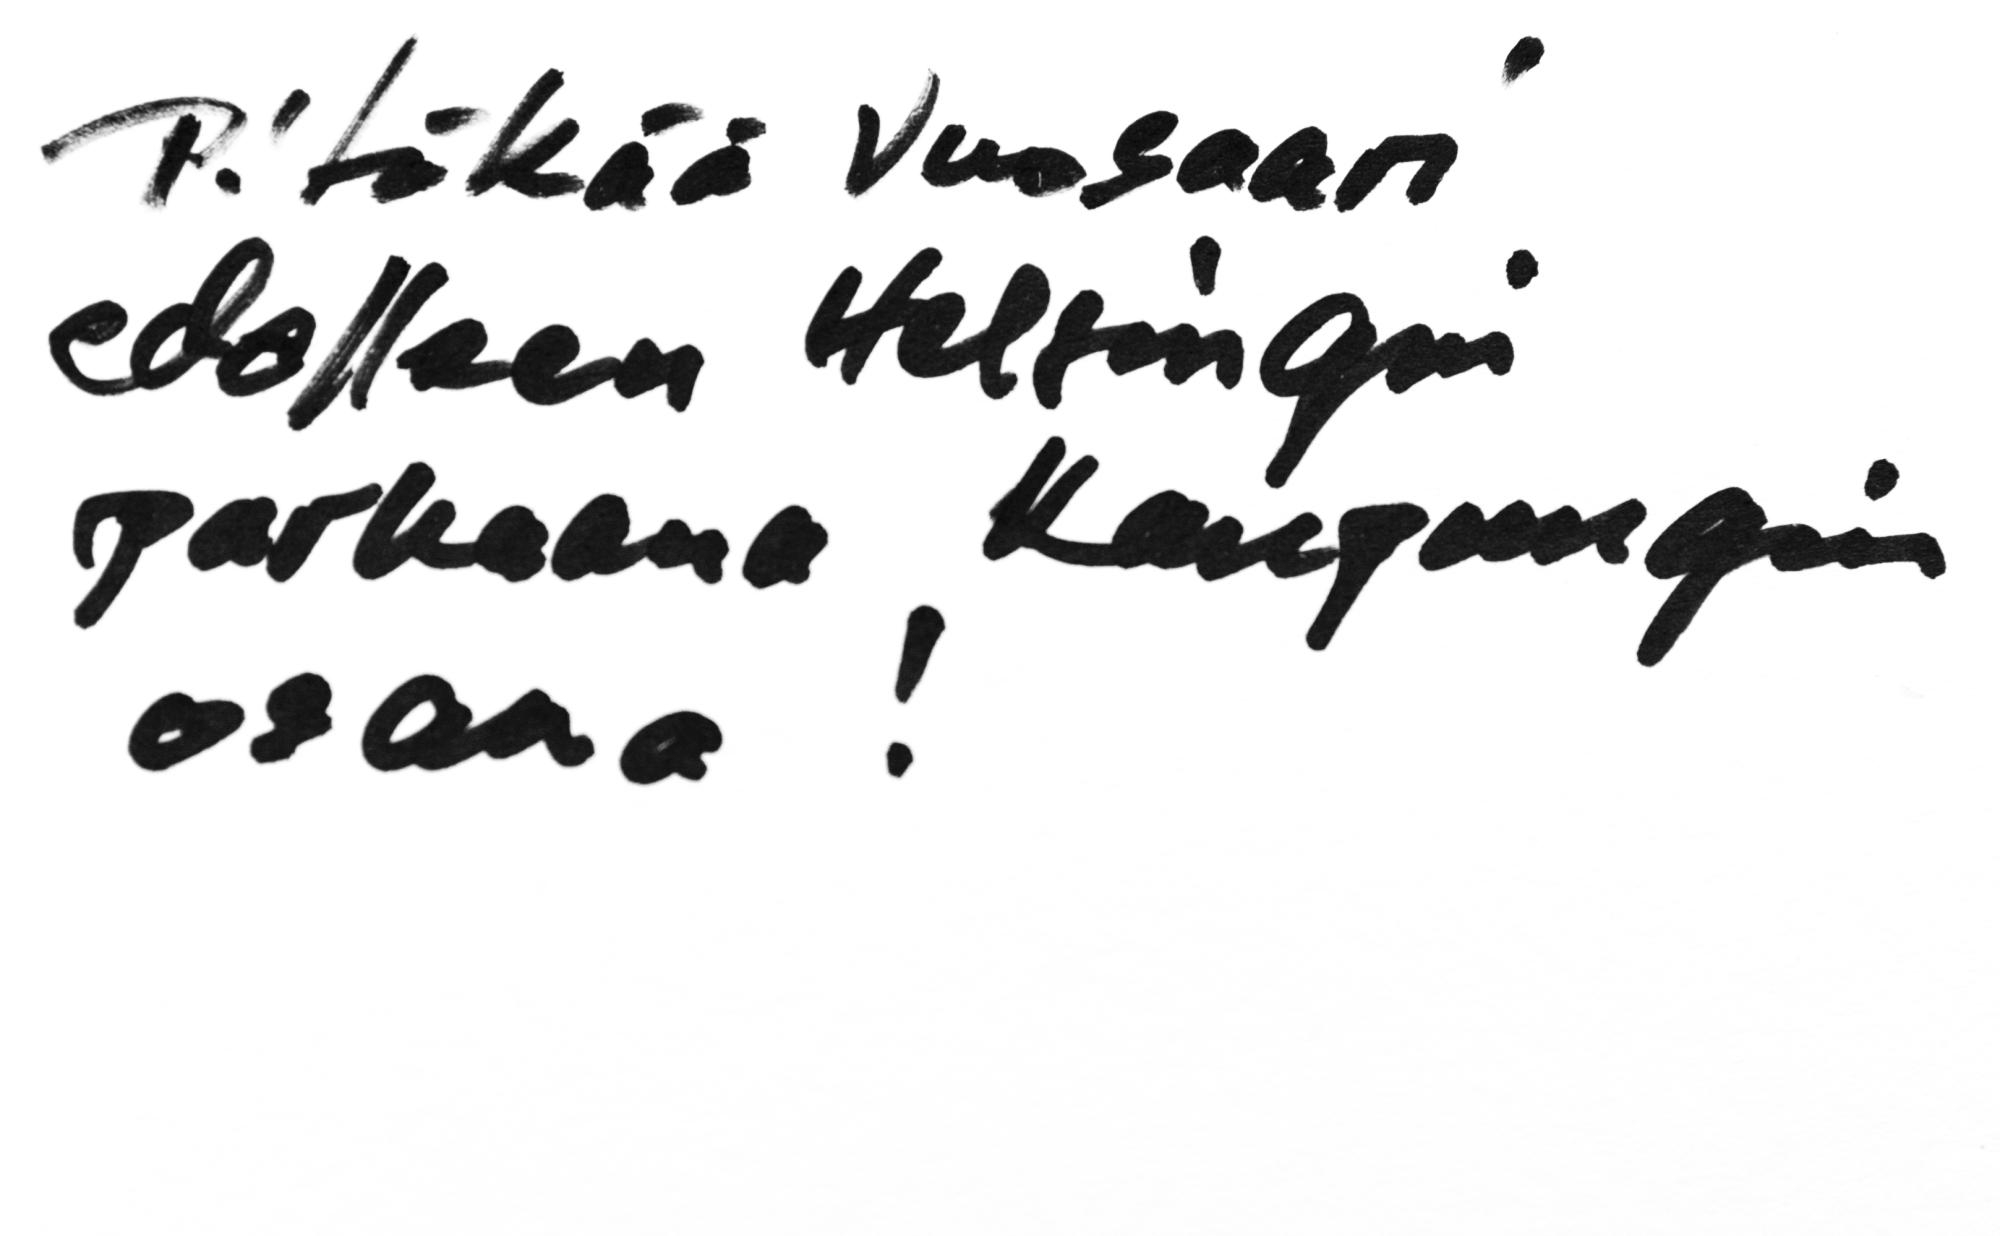 Pitäkää Vuosaari
edelleen Helsingin
parhaana Kaupungin
osana!